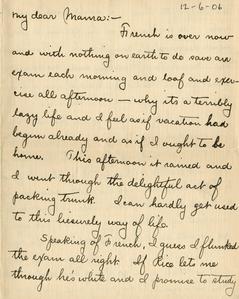 12-6-06
My dear Mama:-
French is over now
and with nothing on earth to do save an
exam each morning and loaf and exer-
cise all afternoon - why its a terribly
lazy life and I feel as if vacation had
begun already and as if I ought to be
home. This afternoon it rained and
I went through the delightful act of
packing trunk. I can hardly get used
to this liesurely way of life.
Speaking of French, I guess I flunked
the exam all right. If Rice lets me
through he's white and I promise to study